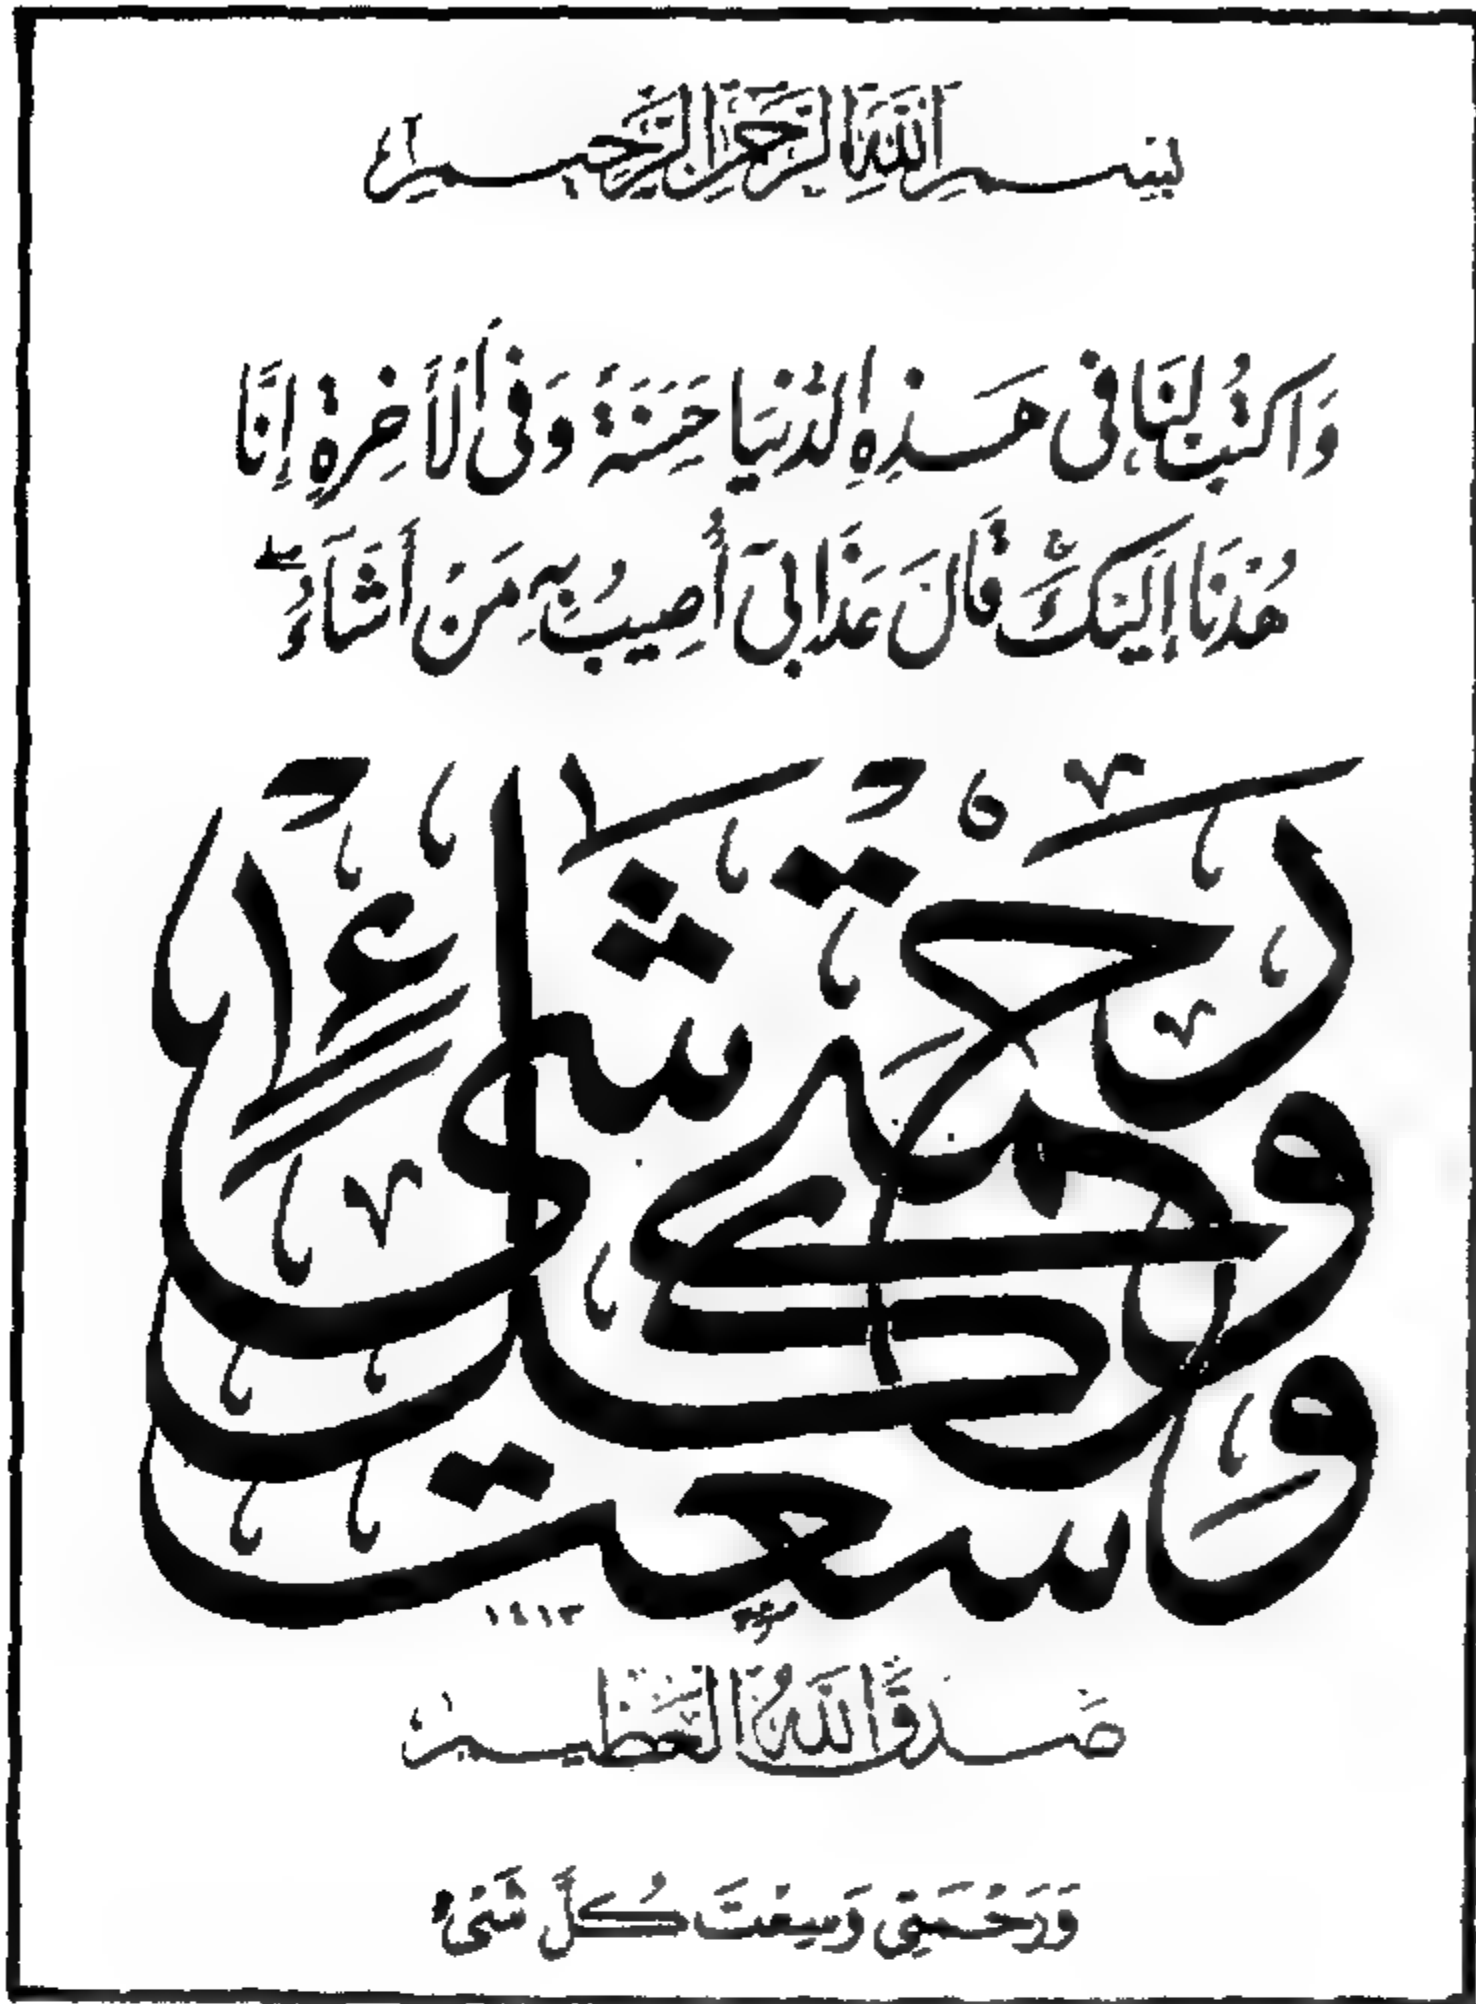 بِسْمِ اللَّهِ الرَّحْمَنِ الرَّحِيمِ
وَاكْتُبْ لَنَا فِى هَذِهِ الدُّنْيَا حَسَنَةً وَفِى الْأَخِرَةِ إِنَّا
هُدْنَا إِلَيْكَ قَالَ عَذَابِىٓ أُصِيبُ بِهِ مَنْ أَشَآءُ ۖ
وَرَحْمَتِى وَسِعَتْ كُلَّ شَىْءٍ
١٤١٣
صَدَقَ اللَّهُ الْعَظِيمُ
وَرَحْمَتِى وَسِعَتْ كُلَّ شَىْءٍ